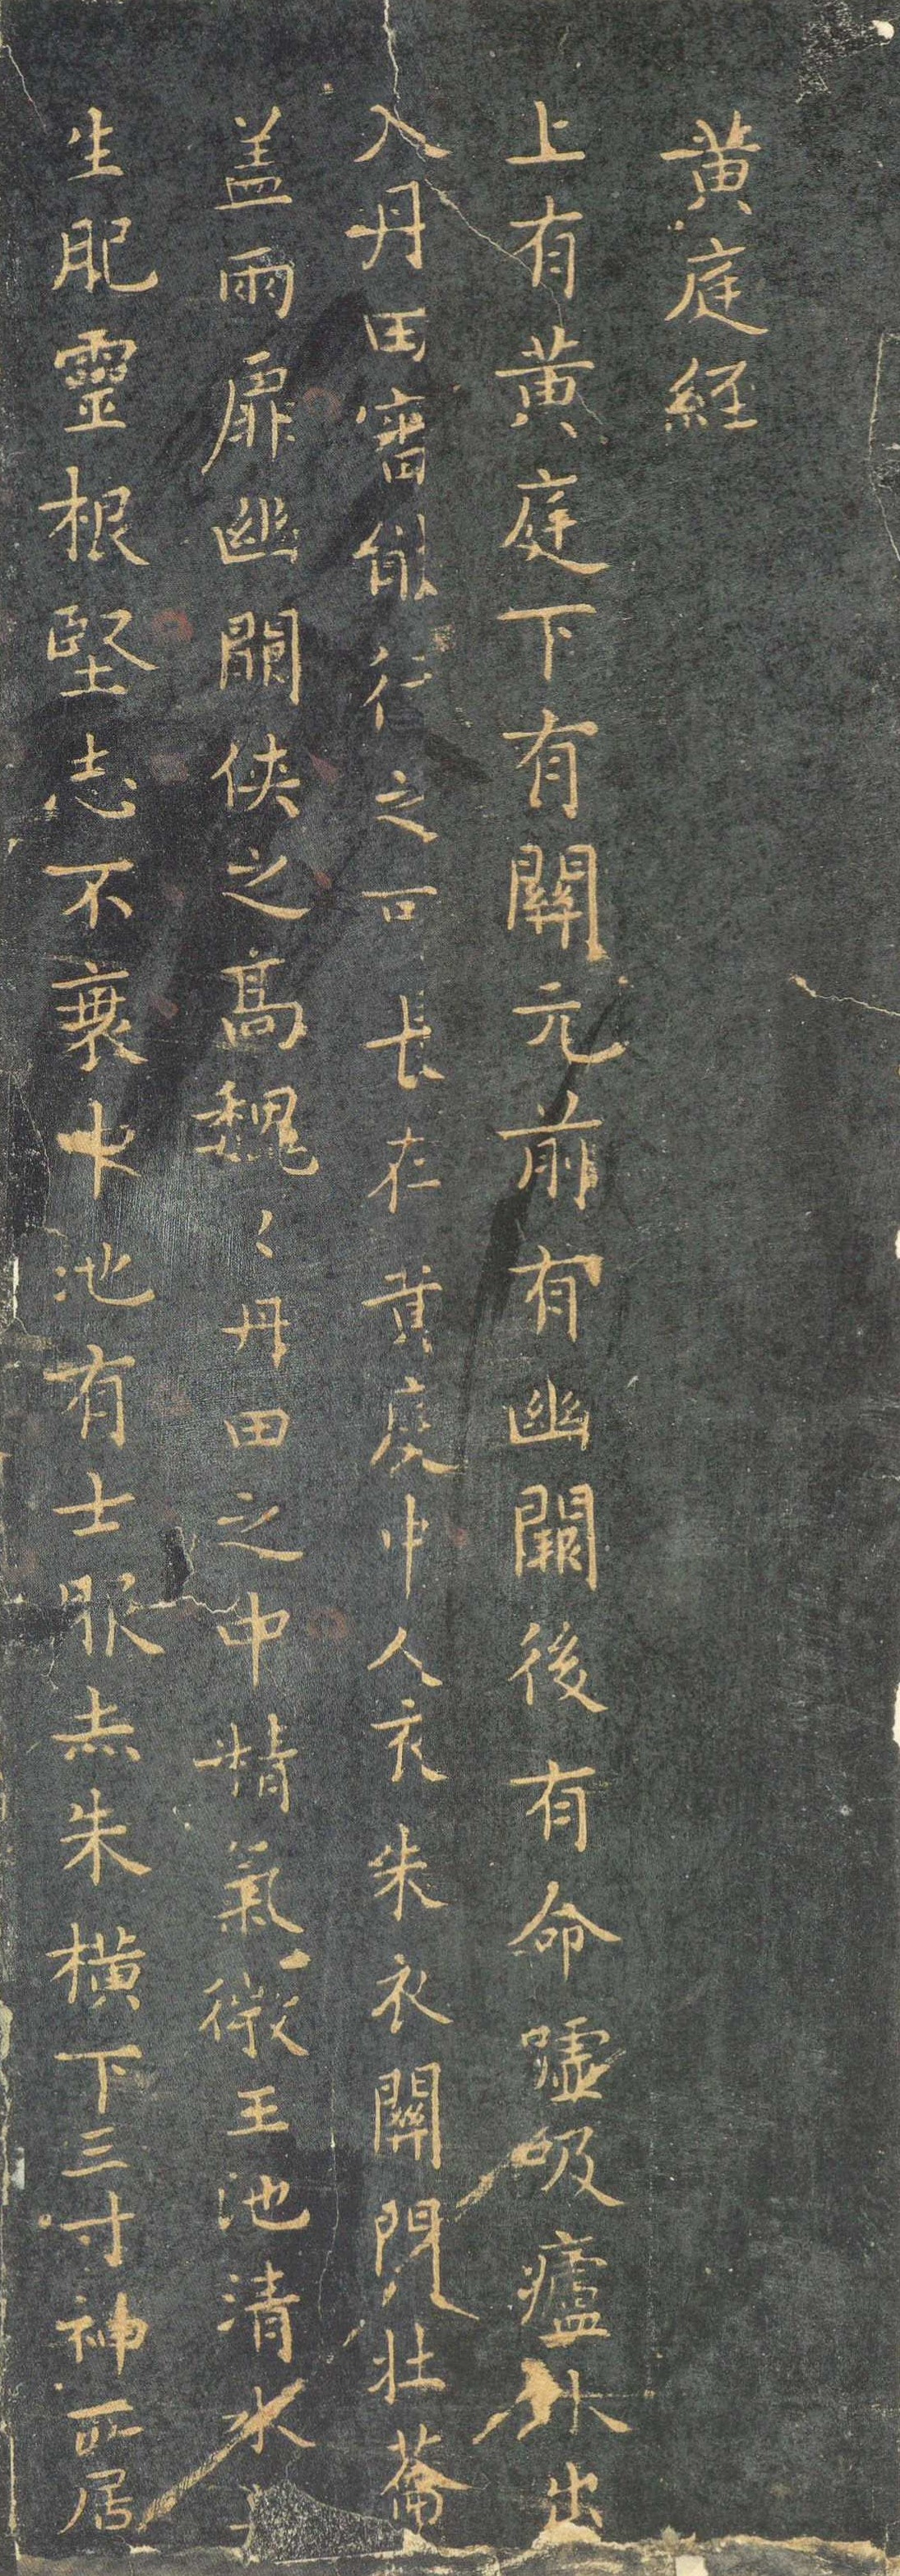 黄庭経
上有黄庭下有關元前有幽闕後有命嘘吸廬外出
入丹田審能行之可長在黄庭中人衣朱衣關門壮籥
盖兩扉幽闕侠之高魏〻丹田之中精氣微王池清水
生肥靈根堅志不衰中池有士服赤朱横下三寸神所居